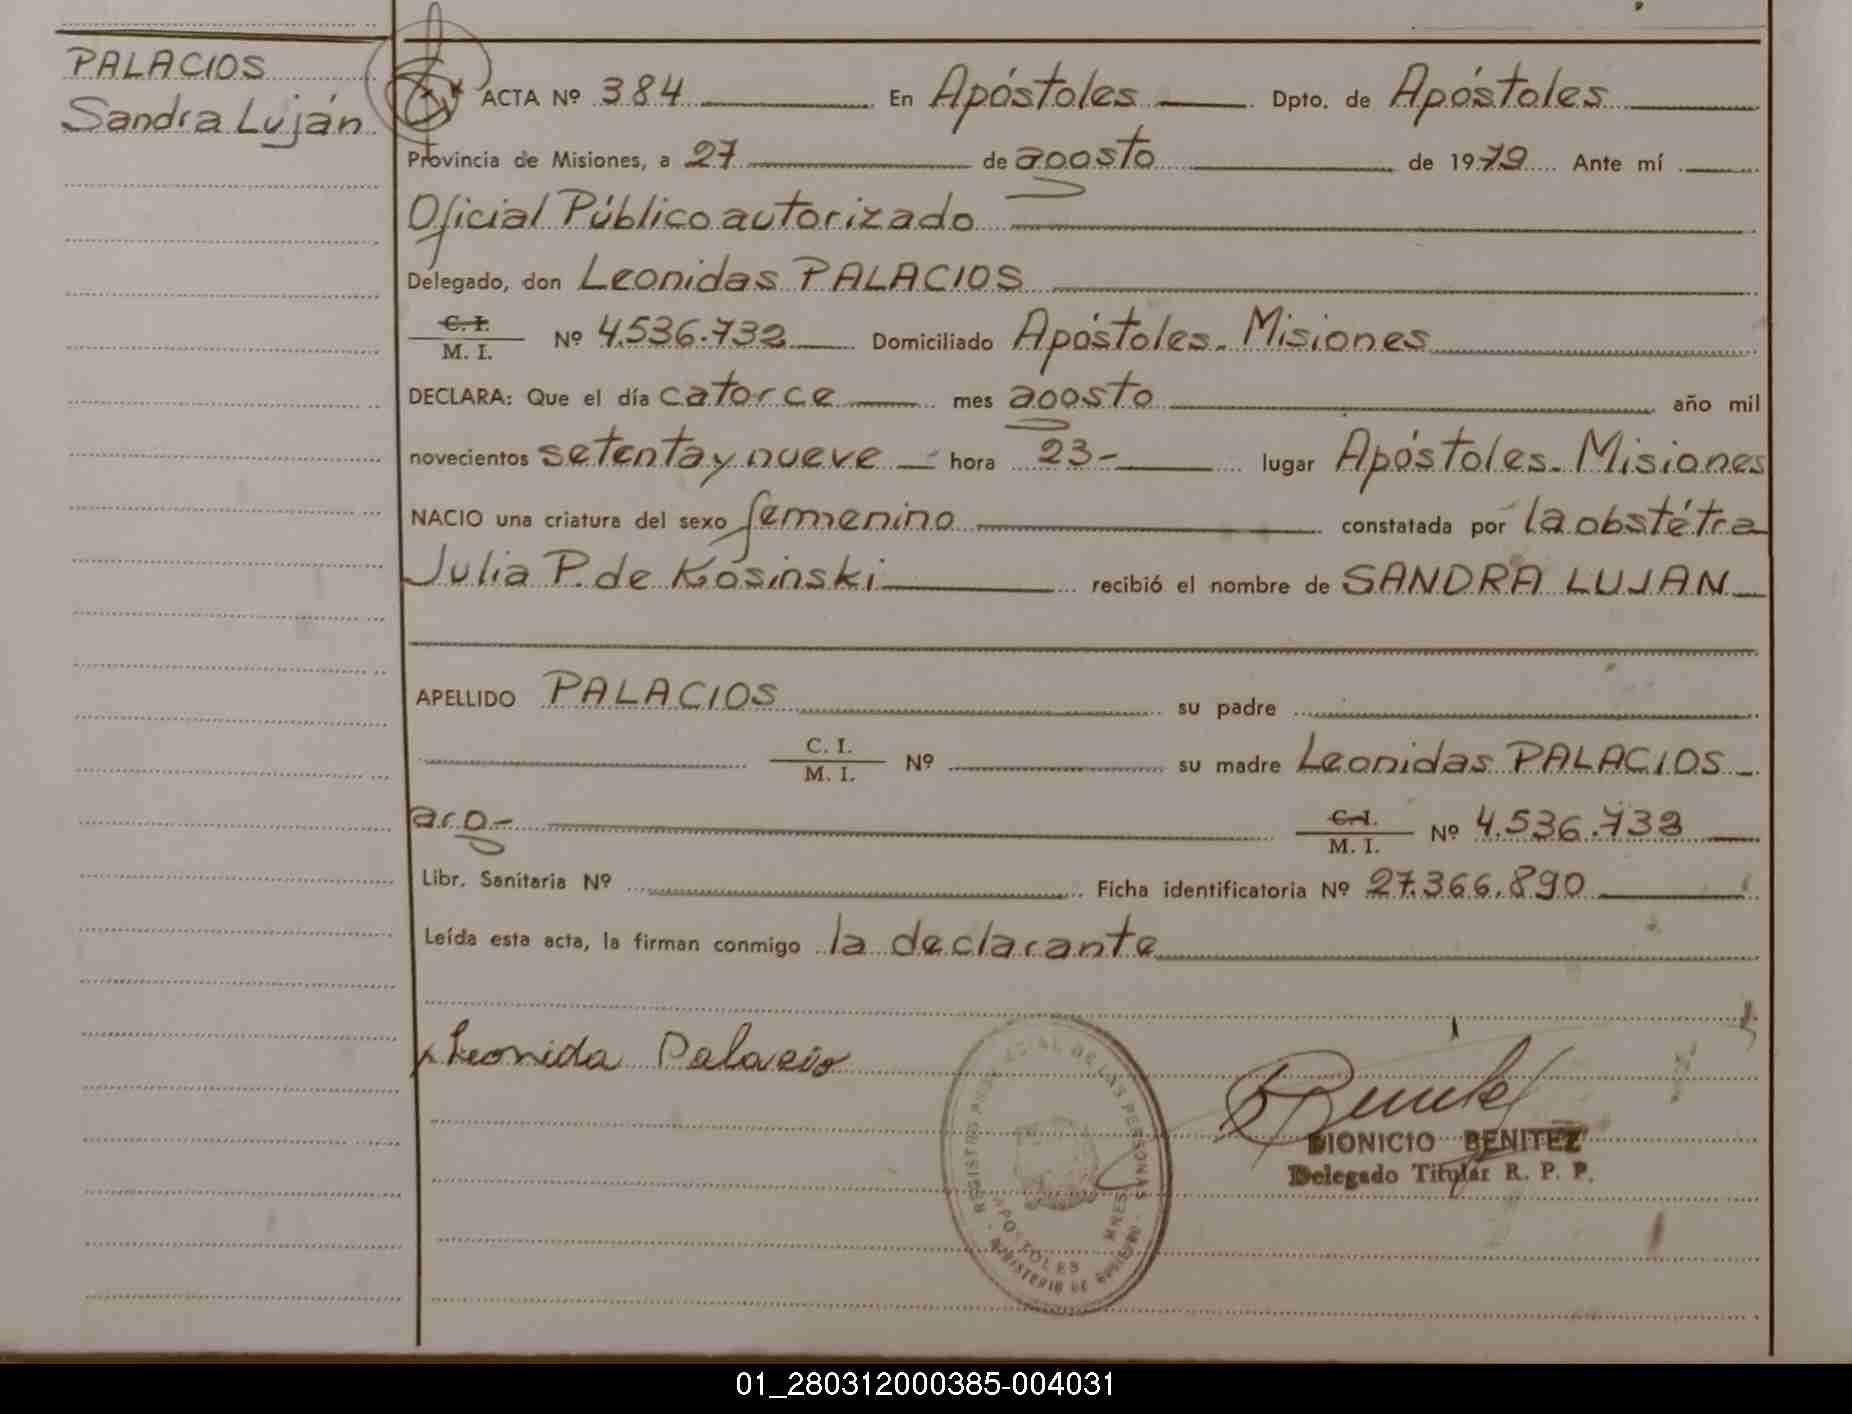 PALACIOS
Sandra Luján
ACTA Nº 384 En Apóstoles Dpto. de Apóstoles
Provincia de Misiones, a 27 de agosto de 1979 Ante mí
Oficial Público autorizado
Delegado, don Leonidas PALACIOS
C. I.
M. I. Nº 4.536.732 Domiciliado Apóstoles. Misiones
DECLARA: Que el día catorce mes agosto año mil
novecientos setenta y nueve hora 23- lugar Apóstoles. Misiones
NACIO una criatura del sexo femenino constatada por la obstétra
Julia P. de Kosinski recibió el nombre de SANDRA LUJAN
APELLIDO PALACIOS su padre
C. I.
M. I. Nº su madre Leonidas PALACIOS
arg- C. I.
M. I. Nº 4.536.732
Libr. Sanitaria Nº Ficha identificatoria Nº 27.366.890
Leída esta acta, la firman conmigo la declarante
x Leonida Palacio
REGISTRO PROVINCIAL DE LAS PERSONAS
APOSTOLES MNES
MINISTERIO DE GOBIERNO
Benitez
DIONICIO BENITEZ
Delegado Titular R. P. P.
01_280312000385-004031